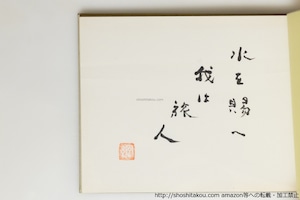 水を賜へ
我は
旅人
http://shoshitakou.com amazon等への転載・加工禁止